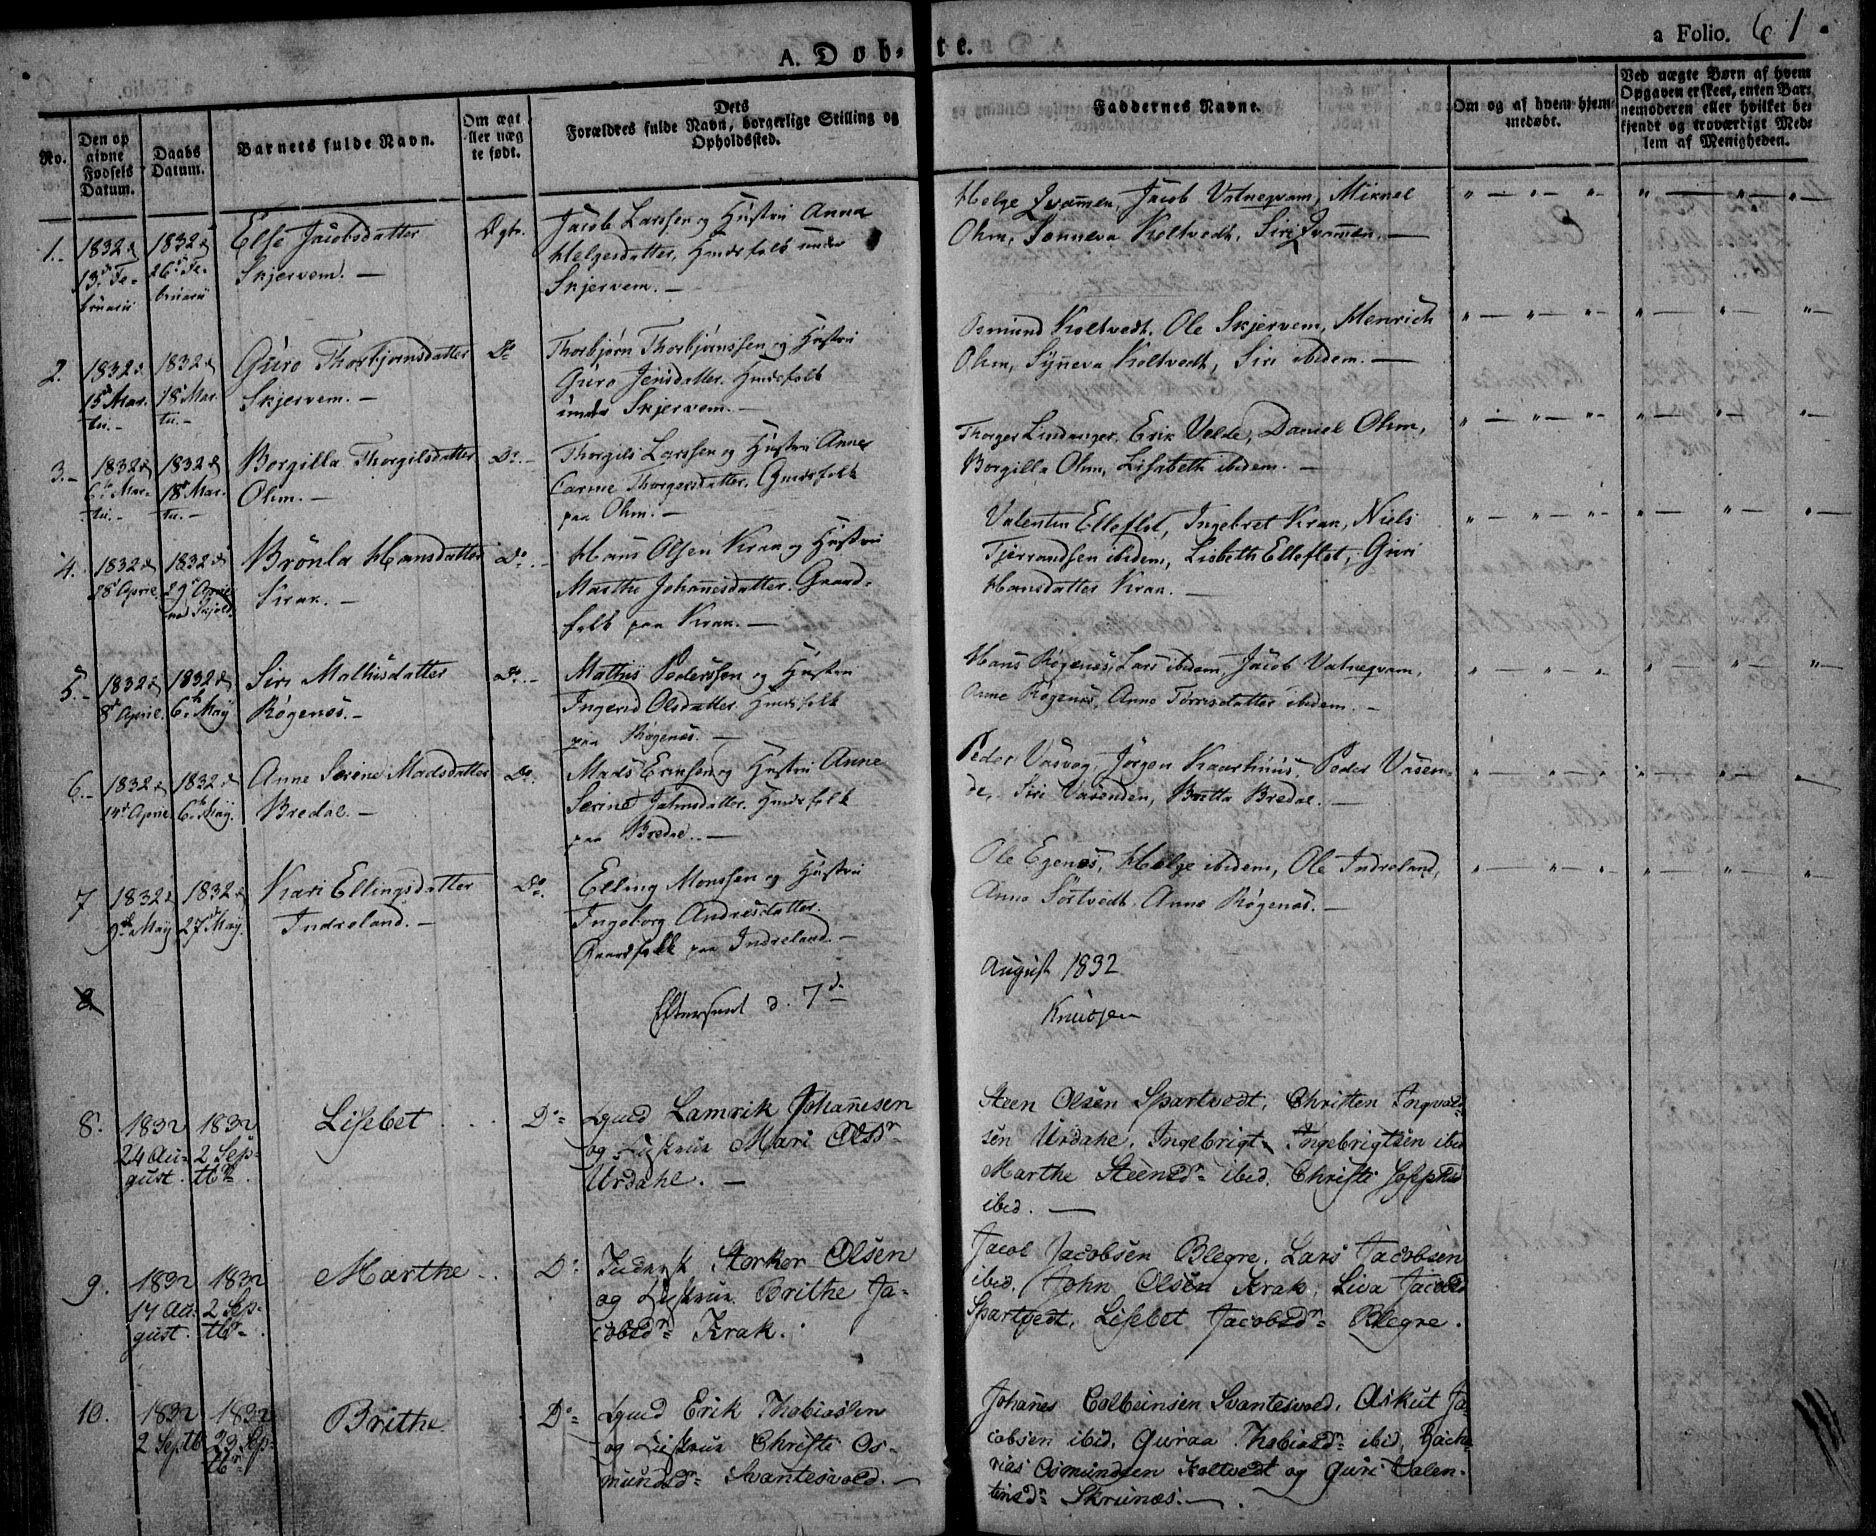 A. Døb-
te.
a Folio. 61.
No.
Den op
givne
Fødsels
Datum.
Daabs
Datum.
Barnets fulde Navn.
Om ægte
eller uæg
te født.
Dets
Forældres fulde Navn, borgerlige Stilling og
Opholdssted.
Faddernes Navne.
Om og af hvem hjem
medøbt.
Ved uægte Børn af hvem
Opgaven er skeet, enten Bar
nemoderen eller hvilket be
kjendt og troværdigt Med
lem af Menigheden.
1.-
1832 d
13d Fe-
bruarii
1832 d
26d Fe-
bruarii
Else Jacobsdatter
Skjervem. -
Ægte.
Jacob Larssen og Hustru Anna
Helgesdatter, Huusfolk under
Skjervem. -
Helge Qvamen, Jacob Vatneqvam, Mikael
Ohm, Sønneva Koltvedt, Siri Qvamen. -
2.
1832 d
15d Mar-
tii.-
1832 d
18d Mar-
tii.-
Guro Thorbjørnsdatter
Skjervem. -
Do
Thorbjørn Thorbjørnssen og Hustru
Guro Jensdatter. Huusfolk
under Skjervem. -
Osmund Koltvedt, Ole Skjervem, Henrich
Ohm, Syneva Koltvedt, Siri ibidem. -
3.-
1832 d
6te Mar-
tii.-
1832 d
18d Mar-
tii.-
Borgilla Thorgilsdatter
Ohm. -
Do.-
Thorgils Larssen og Hustru Anne
Carine Thorgersdatter. Gaardfolk
paa Ohm. -
Thorger Lindanger, Erik Velde, Daniel Ohm,
Borgilla Ohm, Lisabeth ibidem. -
4.
1832 d
18d April.
1832 d
29d April
ved Skjold.
Brønla Hansdatter
Krak. -
Do.-
Hans Olsen Krak og Hustru
Marthe Johanesdatter. Gaard-
folk paa Krak. -
Valentin Elleflot, Ingebret Krak, Niels
Tjerrandsen ibidem, Lisbeth Elleflot, Guri
Hansdatter Krak. -
5.-
1832 d
8d April.
1832 d
6te Maij
Siri Mathisdatter
Røgenæs. -
Do.-
Mathis Pederssen og Hustru
Ingerid Olsdatter. Huusfolk
paa Røgenæs. -
Hans Røgenæs, Lars ibidem, Jacob Vatneqvam,
Anne Røgenæs, Anne Tørrisdatter ibidem. -
6.-
1832 d
14d April.
1832 d
6te Maij.
Anne Serine Madsdatter
Bredal. -
Do.
Mads Eriksen og Hustru Anne
Serine Johnsdatter. Huusfolk
paa Bredal. -
Peder Vasvog, Jørgen Kaarhuus, Peder Vasen-
de, Siri Vasenden, Britta Bredal. -
7
1832 d
9de Maij
1832 d
27d Maij.
Kari Ellingsdatter
Indreland. -
Do.
Elling Monssen og Hustru
Ingeborg Andrisdatter
Gaardfolk paa Indreland. -
Ole Egenæs, Helge ibidem, Ole Indreland,
Anne Sørtvedt, Anne Røgenæs. -
8.
Efterseet d. 7de
August 1832
Knudsen
8.
1832
24 Au-
gust.
1832
2 Sep-
tbr.
Lisebet
Do-
Lamrik Johanesen
og Hustrue Mari Olsdr
Urdahl. -
Steen Olsen Spartvedt, Christen Ingvald-
sen Urdahl, Ingebrigt Ingebrigtsen ibid
Marthe Steensdr ibid. Christi
ibid. -
9.
1832
17 Au-
gust.
1832
2 Sep-
tbr
Marthe
Do
Storker Olsen
og Hustrue Brithe Ja-
cobsdr Krak.
Jacob Jacobsen Blegre, Lars Jacobsen
ibid, John Olsen Krak, Liva Jacobsd
Spartvedt, Lisebet Jacobsdr Blegre.
10.
1832
2 Septb
1832
23 Sep-
tbr
Brithe
Do-
Erik Thobiassen
og Hustrue Christi Os-
mundsdr Svantesvold. -
Johanes Colbeinsen Svantesvold, Askut Ja-
cobsen ibid, Guraa Thobiasdr ibid, Zacha-
rias Osmundsen Koltvedt og Guri Valen-
tinsdr Skrunæs. -